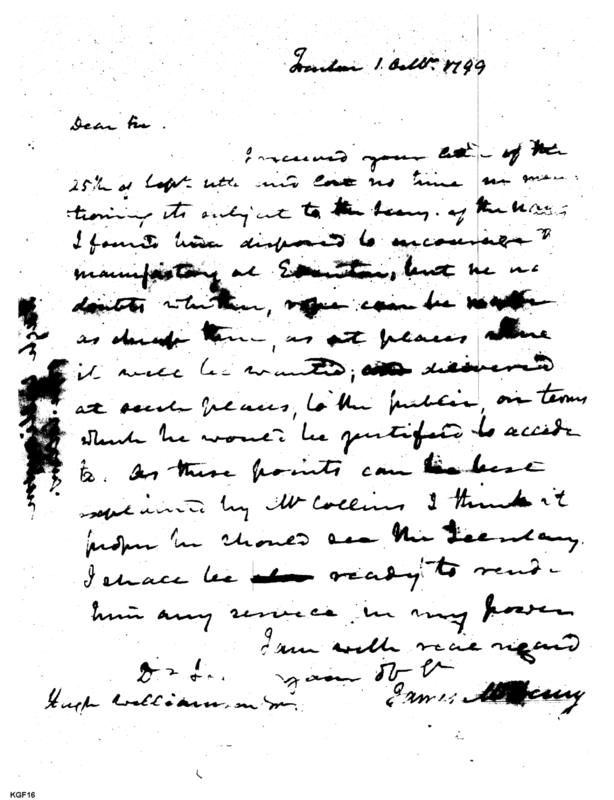 Trenton 1. Octbr. 1799
Dear Sir.
I received your letter of the
25th of Sept. ulto and lost no time in men
tioning its subject to the Secy. of the Navy
I found him disposed to encourage a
manufactory at Edenton, but he
doubts whether, rope can be made
as cheap there, as at places where
it will be wanted; delivered
at such places, to the public, on terms
which he would be justified to accede
to. As these points can be best
explained by Mr Collins I think it
proper he should see the Secretary.
I shall be ready to rende
him any service in my power
I am with real regard
Dr Sir your ob St
Hugh Williamson James McHenry
KGF16